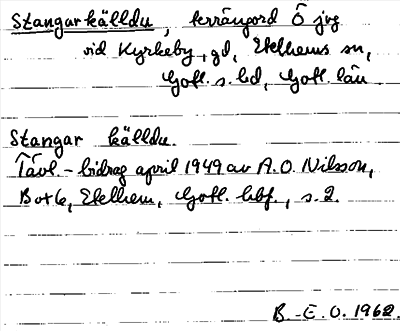 Stangarkälldu, terrängord Ö jvg
vid Kyrkeby, gd, Etelhems sn,
Gotl. s. hd, Gotl. län.
Stangar källdu.
Tävl.-bidrag april 1949 av A.O. Nilsson,
Botte, Etelhem, Gotl. hbf., s.2.
B.-E. O. 1962.